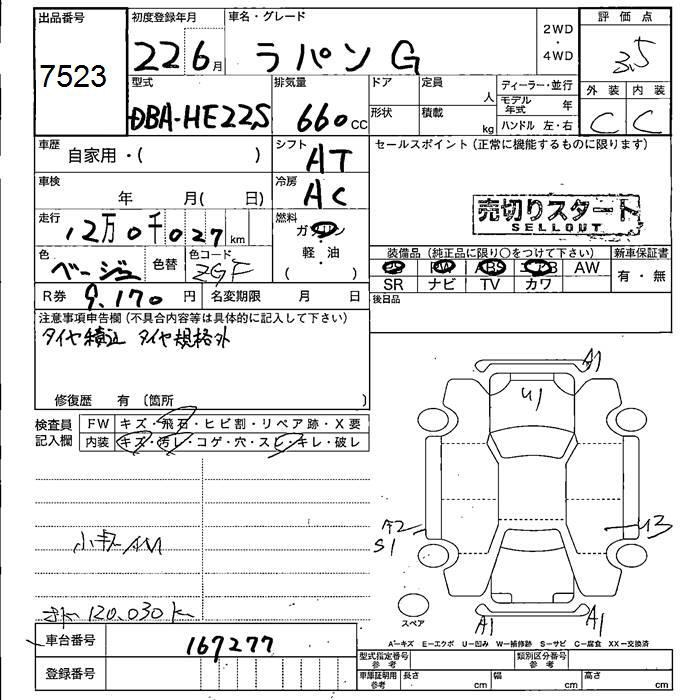 出品番号
7523
初度登録年月
22 6 月
車名・グレード
ラパン G
2WD
・
4WD
評価点
3.5
外装 内装
C C
型式
DBA-HE22S
排気量
660 CC
ドア
形状
定員
人
積載
kg
ディーラー・並行
モデル年式 年
ハンドル 左・右
車歴
自家用・( )
シフト
AT
セールスポイント(正常に機能するものに限ります)
車検
年 月( 日)
冷房
AC
売切りスタート
SELLOUT
走行
12万0千027 km
燃料
ガソリン
軽・油
( )
色
ベージュ
色替
色コード
ZGF
装備品(純正品に限り○をつけて下さい)
新車保証書
PS PW ABS エアB AW
SR ナビ TV カワ
有・無
R券 9,170 円
名変期限 月 日
後日品
注意事項申告欄(不具合内容等は具体的に記入して下さい)
タイヤ積込 タイヤ規格外
修復歴 有〔箇所 〕
検査員
記入欄
FW キズ・飛石・ヒビ割・リペア跡・X要
内装 キズ・汚レ・コゲ・穴・スレ・キレ・破レ
A1
U1
A2
S1
U3
120,030 k
スペア
A1
A1
A=キズ E=エクボ U=凹み W=補修跡 S=サビ C=腐食 XX=交換済
車台番号
167277
登録番号
型式指定番号
参考
類別区分番号
参考
車庫証明用
参考
長さ cm
幅 cm
高さ cm